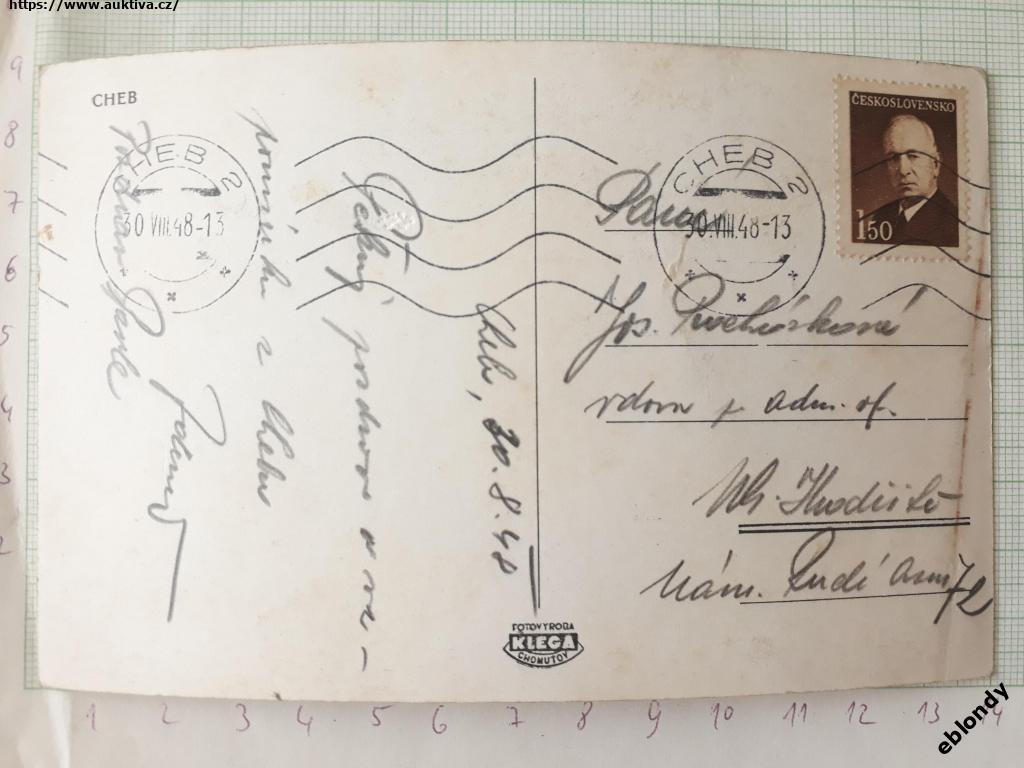 https://www.auktiva.cz/
CHEB
CHEB 2
30.VIII.48-13
CHEB 2
30.VIII.48-13
ČESKOSLOVENSKO
1.50
Cheb, 30.8.48
Pěkný pozdrav a vz-
pomínku z Chebu
Paní
Jos.
vdova p. adm. of.
Uh. Hradiště
nám. Rudé Arm 72
FOTOVÝROBA
KLEGA
CHOMUTOV
9
8
7
6
5
4
3
2
1 2 3 4 5 6 7 8 9 10 11 12 13 14
eblondy